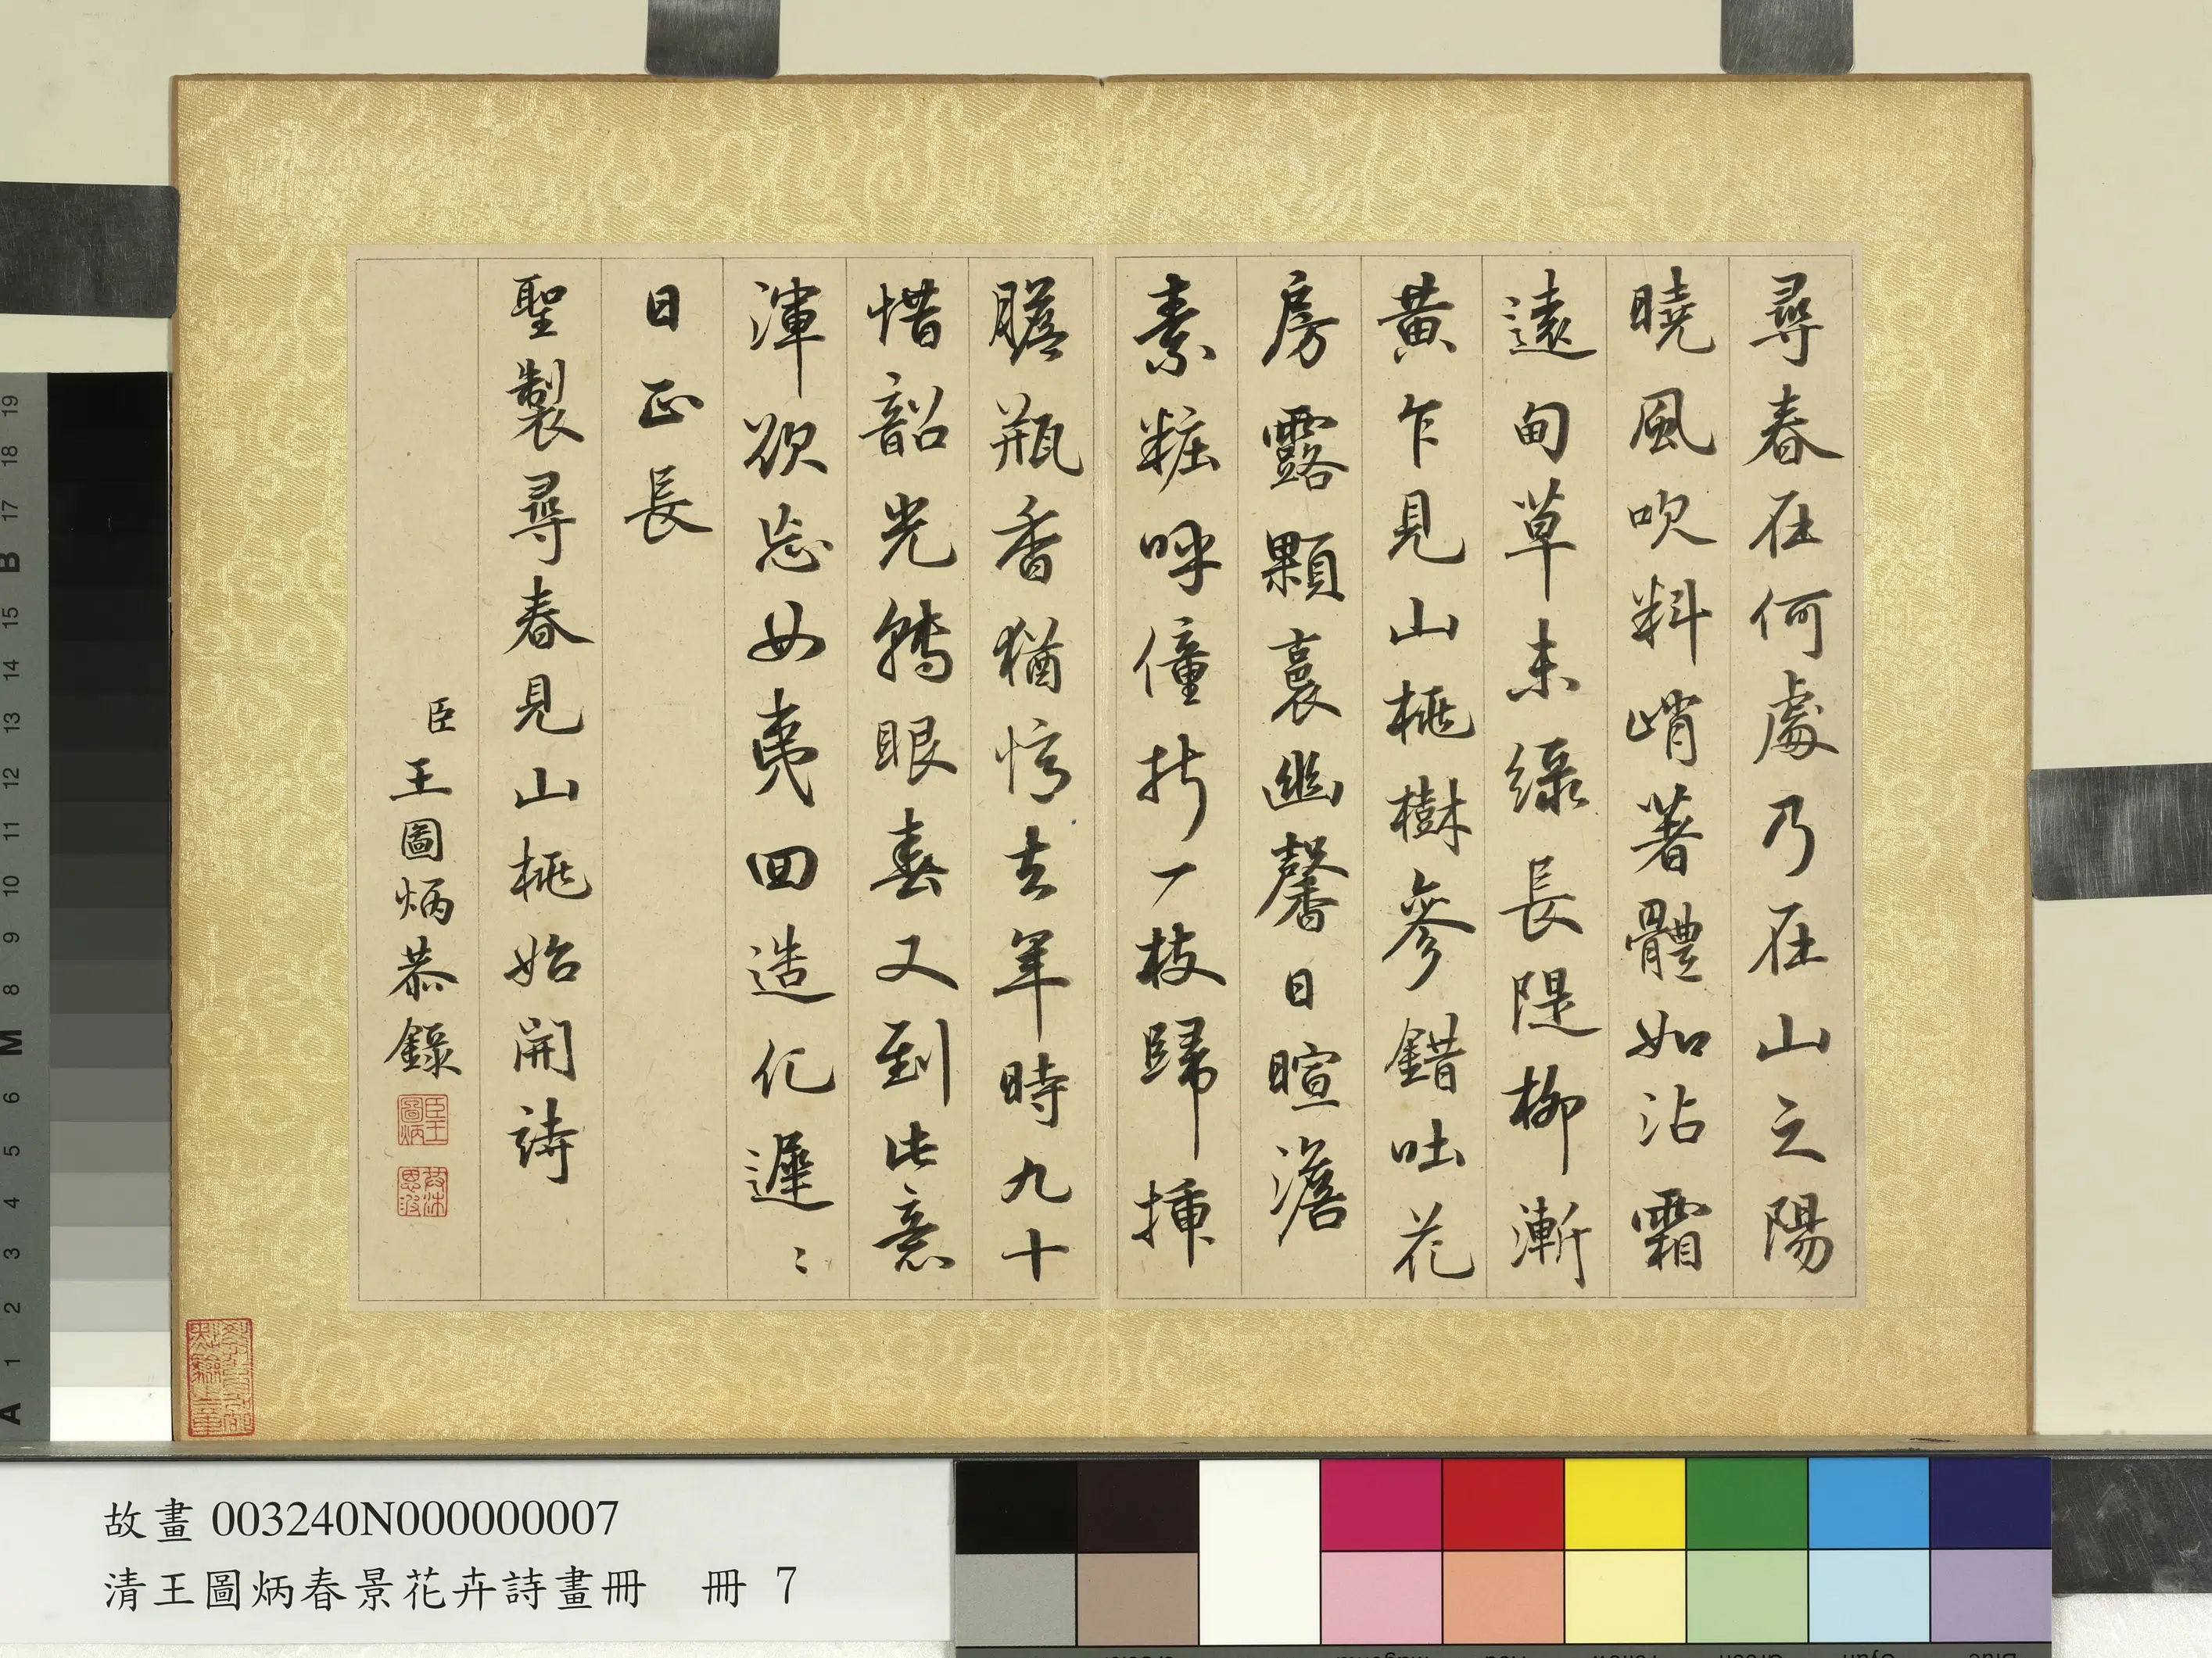 尋春在何處乃在山之陽
曉風吹料峭著體如沾霜
遠甸草未綠長隄柳漸
黃乍見山桃樹參錯吐花
房露顆裛幽馨日暄澹
素粧呼僮折一枝歸揷
膽瓶香猶憶去年時九十
惜韶光轉眼春又到此意
渾欲忘女夷回造化遲〻
日正長
聖製尋春見山桃始開詩
臣王圖炳恭錄
臣王圖炳
故畫 003240N000000007
清王圖炳春景花卉詩畫冊 冊 7
A 1 2 3 4 5 6 M 8 9 10 11 12 13 14 15 B 17 18 19